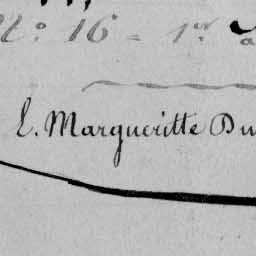 N.° 16 = 1.er
L. Margueritte Du